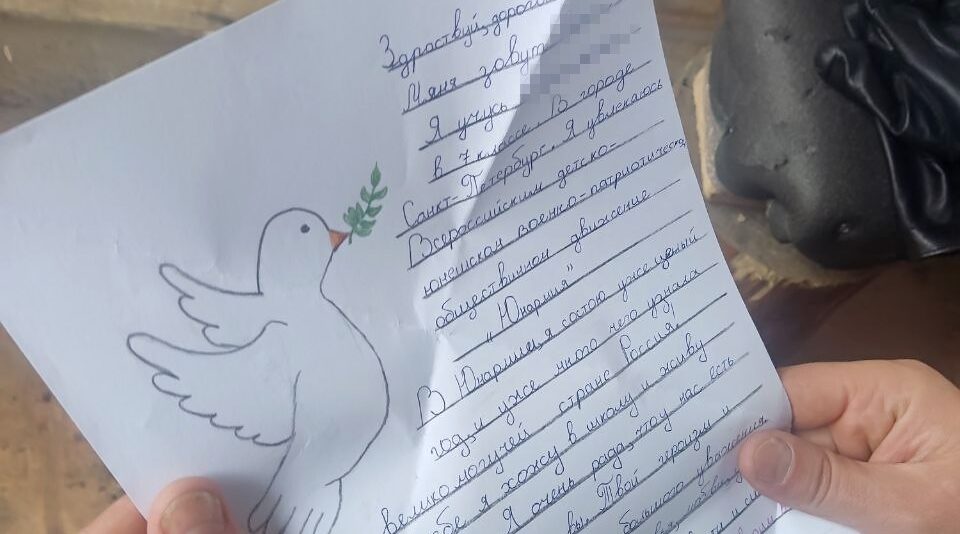 Здраствуй, дорогой
Мяня зовут
Я учусь
в 7 классе. В городе
Санкт-Петербург. Я увлекаюсь
Всероссийским детско-
юнешскам военно-патриотическо
общественном движение
"Юнармия"
В Юнармии, я состою уже целый
год, и уже много чего узнала
великомогучей стране Россия!
я хожу в школу и живу
Я очень рада, что у нас есть
вы. Твой героизм и
большого уважения